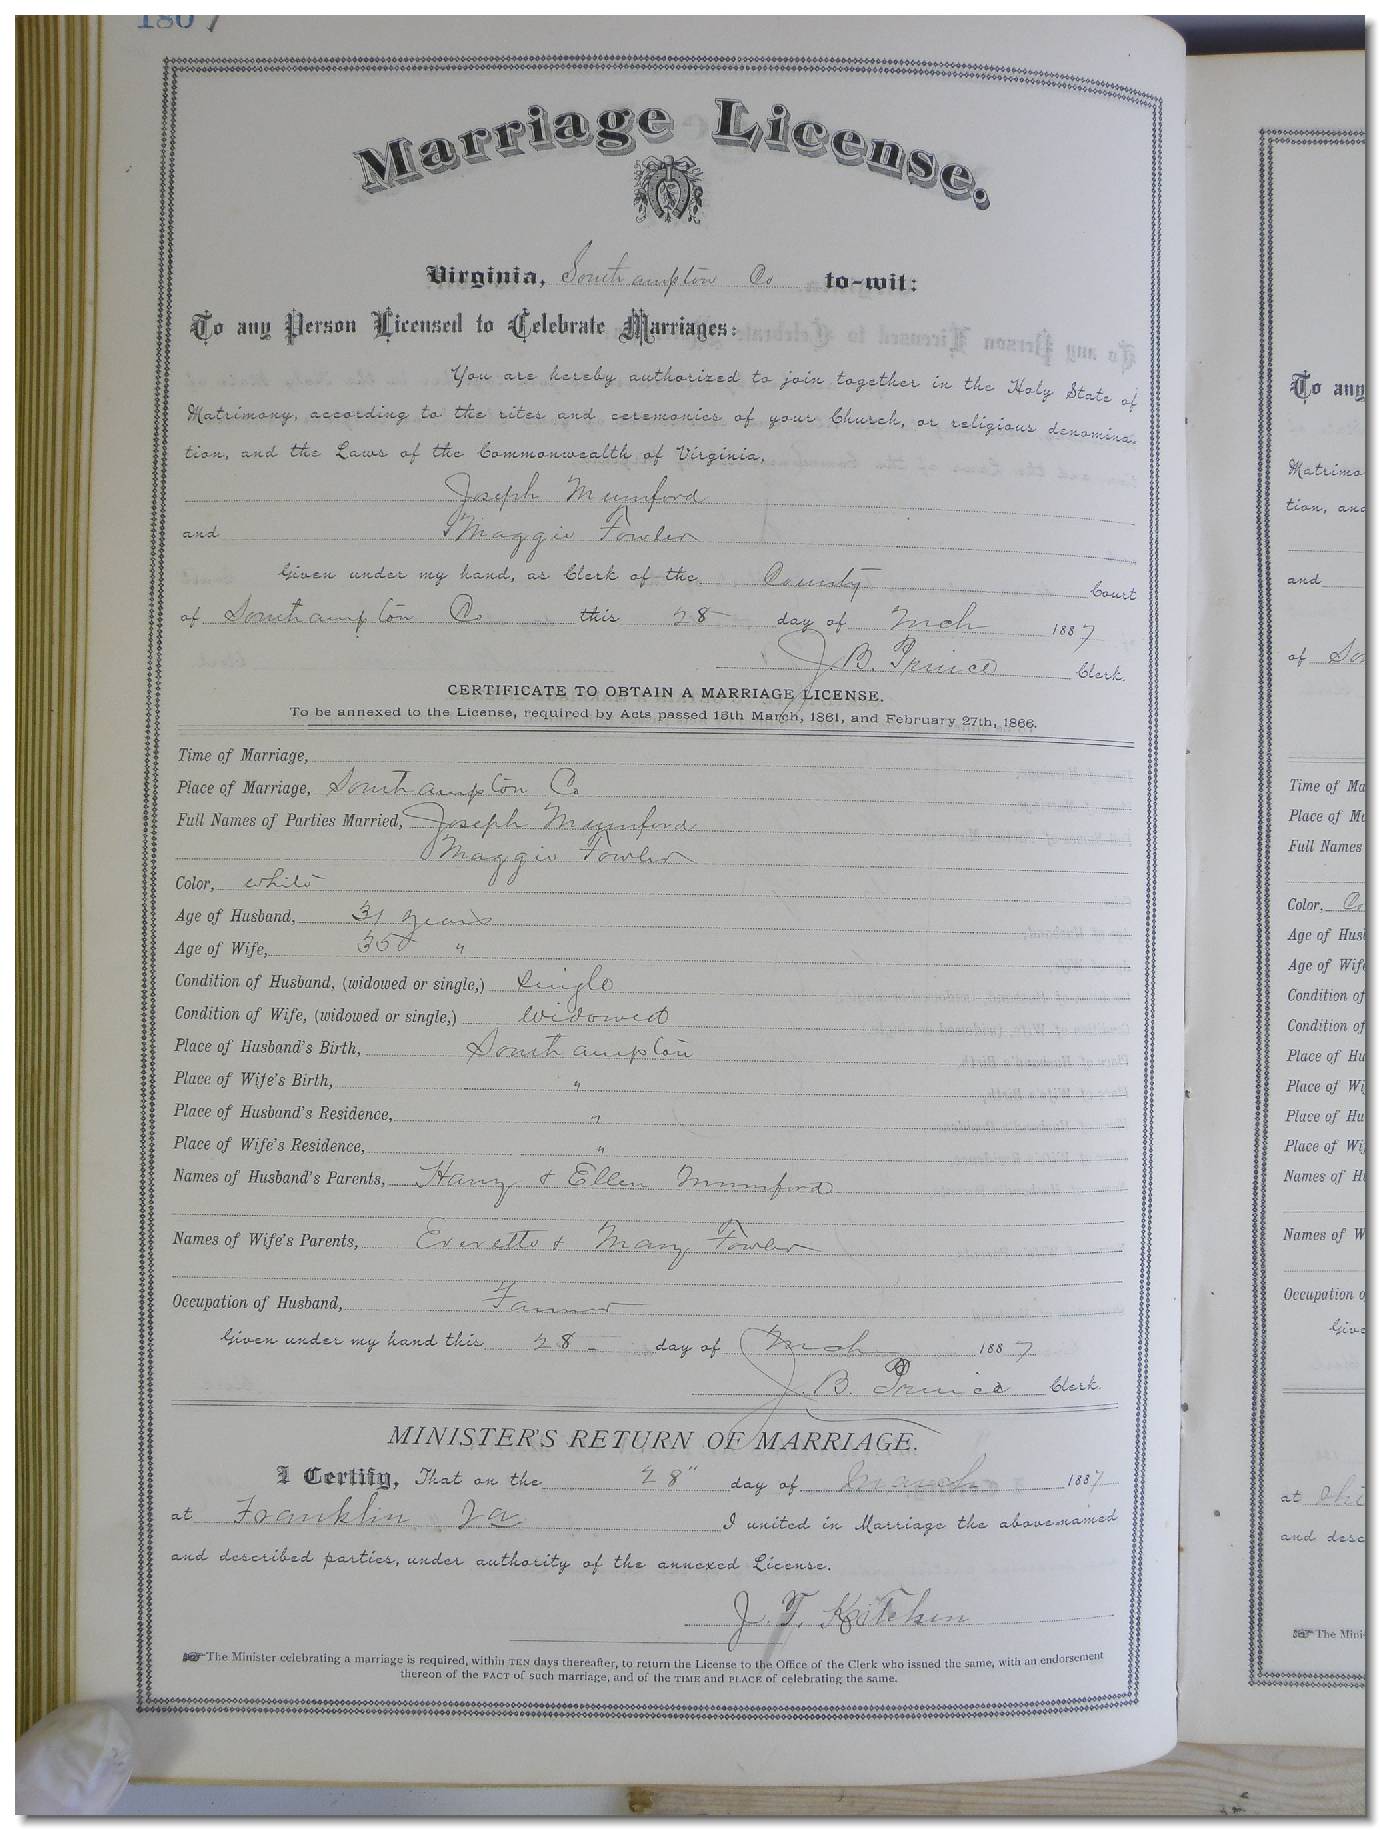 Marriage License.
Virginia, Southampton Co to-wit:
To any Person Licensed to Celebrate Marriages:
You are hereby authorized to join together in the Holy State of
Matrimony, according to the rites and ceremonies of your Church, or religious denomina-
tion, and the Laws of the Commonwealth of Virginia,
Joseph Mumford
and Maggie Fowler
Given under my hand, as Clerk of the County Court
of Southampton Co this 28 day of Mch 1887
J. B. Prince Clerk.
CERTIFICATE TO OBTAIN A MARRIAGE LICENSE.
To be annexed to the License, required by Acts passed 16th March, 1861, and February 27th, 1866.
Time of Marriage,
Place of Marriage, Southampton Co
Full Names of Parties Married, Joseph Mumford
Maggie Fowler
Color, white
Age of Husband, 31 years
Age of Wife, 35 "
Condition of Husband, (widowed or single,) single
Condition of Wife, (widowed or single,) widowed
Place of Husband's Birth, Southampton
Place of Wife's Birth, "
Place of Husband's Residence, "
Place of Wife's Residence, "
Names of Husband's Parents, Harry & Ellen Mumford
Names of Wife's Parents, Everette & Mary Fowler
Occupation of Husband, Farmer
Given under my hand this 28 day of Mch 1887
J. B. Prince Clerk.
MINISTER'S RETURN OF MARRIAGE.
I Certify, That on the 28" day of March 1887
at Franklin Va I united in Marriage the above-named
and described parties, under authority of the annexed License.
J. T. Kitchen
The Minister celebrating a marriage is required, within TEN days thereafter, to return the License to the Office of the Clerk who issued the same, with an endorsement
thereon of the FACT of such marriage, and of the TIME and PLACE of celebrating the same.
To any
Matrimo
tion, and
and
of So
Time of Ma
Place of Ma
Full Names
Color, Co
Age of Hus
Age of Wife
Condition of
Condition of
Place of Hu
Place of Wi
Place of Hu
Place of Wi
Names of H
Names of W
Occupation o
Give
at
and desc
The Mini